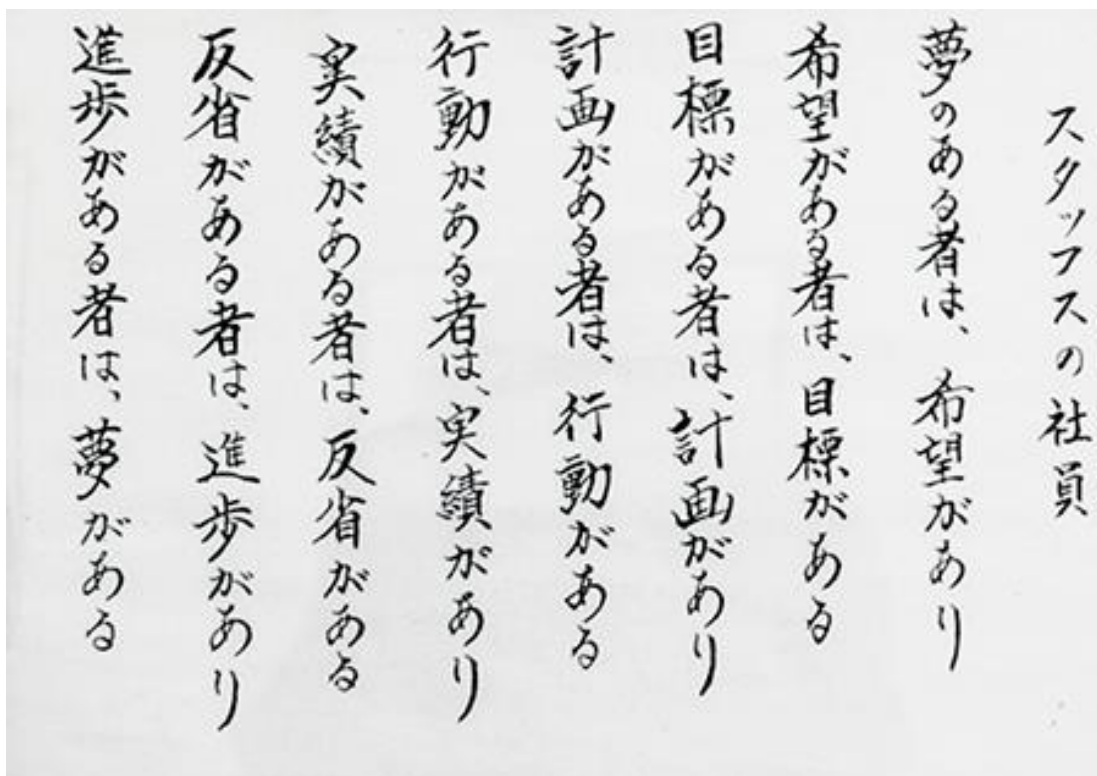 スタッフスの社員
夢のある者は、希望があり
希望がある者は、目標がある
目標がある者は、計画があり
計画がある者は、行動がある
行動がある者は、実績があり
実績がある者は、反省がある
反省がある者は、進歩があり
進歩がある者は、夢がある